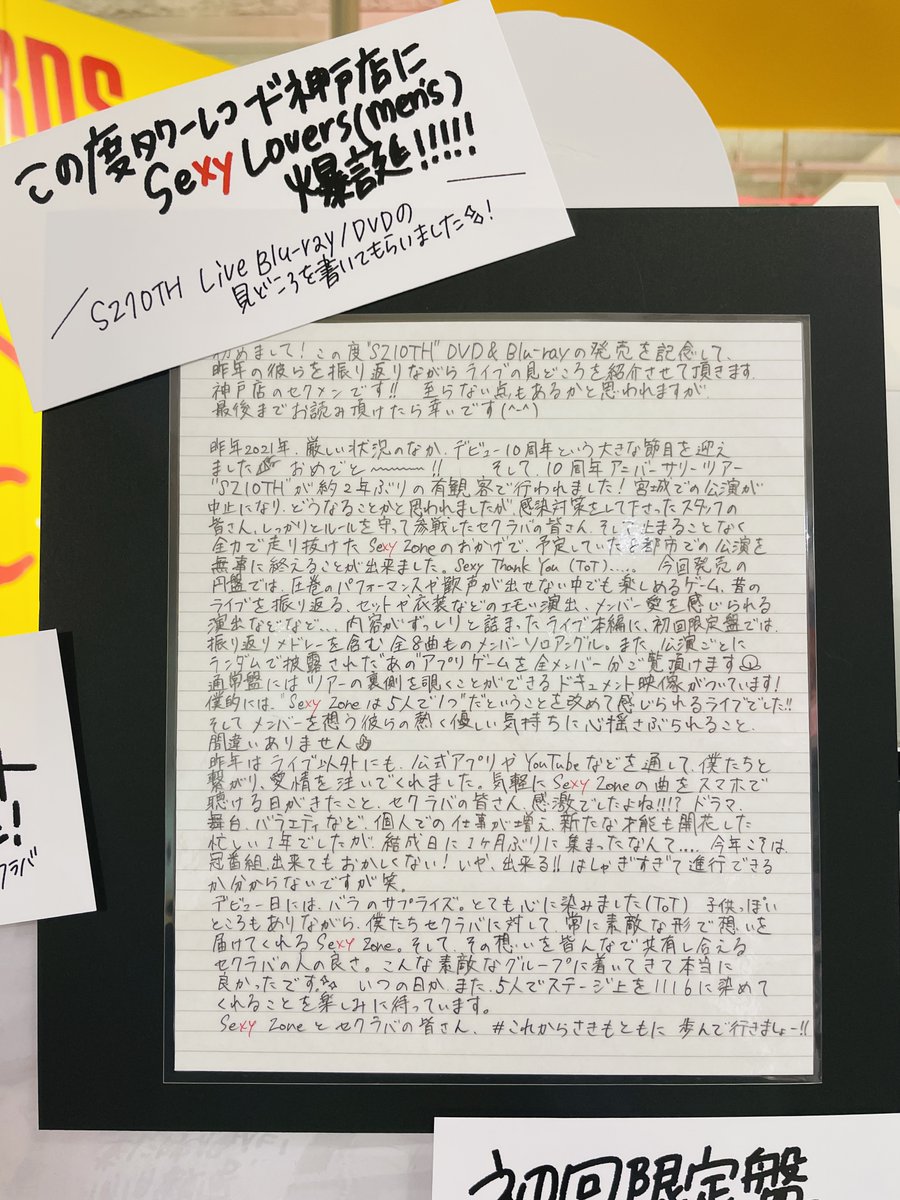 RDS
この度タワーレコード神戸店に
Sexy Lovers(men's)
爆誕!!!!!
／SZ10TH Live Blu-ray/DVDの
見どころを書いてもらいました☆!
初めまして！この度"SZ10TH" DVD & Blu-rayの発売を記念して、
昨年の彼らを振り返りながらライブの見どころを紹介させて頂きます
神戸店のセクメンです!! 至らない点もあるかと思われますが
最後までお読み頂けたら幸いです(^-^)
昨年2021年、厳しい状況のなか、デビュー10周年という大きな節目を迎え
ました おめでと〜〜〜!! そして、10周年アニバーサリーツアー
"SZ10TH"が約2年ぶりの有観客で行われました！宮城での公演が
中止になり、どうなることかと思われましたが、感染対策をして下さったスタッフの
皆さん、しっかりとルールを守って参戦したセクラバの皆さん、そして止まることなく
全力で走り抜けたSexy Zoneのおかげで、予定していた 都市での公演を
無事に終えることが出来ました。Sexy Thank You (ToT)..... 今回発売の
円盤では、圧巻のパフォーマンスや歓声が出せない中でも楽しめるゲーム、昔の
ライブを振り返る、セットや衣装などのエモい演出、メンバー愛を感じられる
演出などなど... 内容がずっしりと詰まったライブ本編に、初回限定盤では、
振り返りメドレーを含む全8曲ものメンバーソロアングル。また、公演ごとに
ランダムで披露された"あの"アプリゲームを全メンバー分ご覧頂けます
通常盤にはツアーの裏側を覗くことができるドキュメント映像がついています！
僕的には、"Sexy Zoneは5人で1つ"だということを改めて感じられるライブでした!!
そしてメンバーを想う彼らの熱く優しい気持ちに心揺さぶられること、
間違いありません
昨年はライブ以外にも、公式アプリやYouTubeなどを通して、僕たちと
繋がり、愛情を注いでくれました。気軽にSexy Zoneの曲をスマホで
聴ける日がきたこと、セクラバの皆さん、感激でしたよね!!!? ドラマ、
舞台、バラエティなど、個人での仕事が増え、新たな才能も開花した
忙しい1年でしたが、結成日に1ヶ月ぶりに集まったなんて.... 今年こそは、
冠番組、出来てもおかしくない！いや、出来る!! はしゃぎすぎて進行できる
か分からないですが笑。
デビュー日には、バラのサプライズ。とても心に染みました(ToT) 子供っぽい
ところもありながら、僕たちセクラバに対して、常に素敵な形で想いを
届けてくれるSexy Zone。そして、その想いを皆んなで共有し合える
セクラバの人の良さ。こんな素敵なグループに着いてきて本当に
良かったです。 いつの日か、また、5人でステージ上を1116に染めて
くれることを楽しみに待っています。
Sexy Zoneとセクラバの皆さん、#これからさきもともに 歩んで行きましょー!!
!
クラバ
初回限定盤